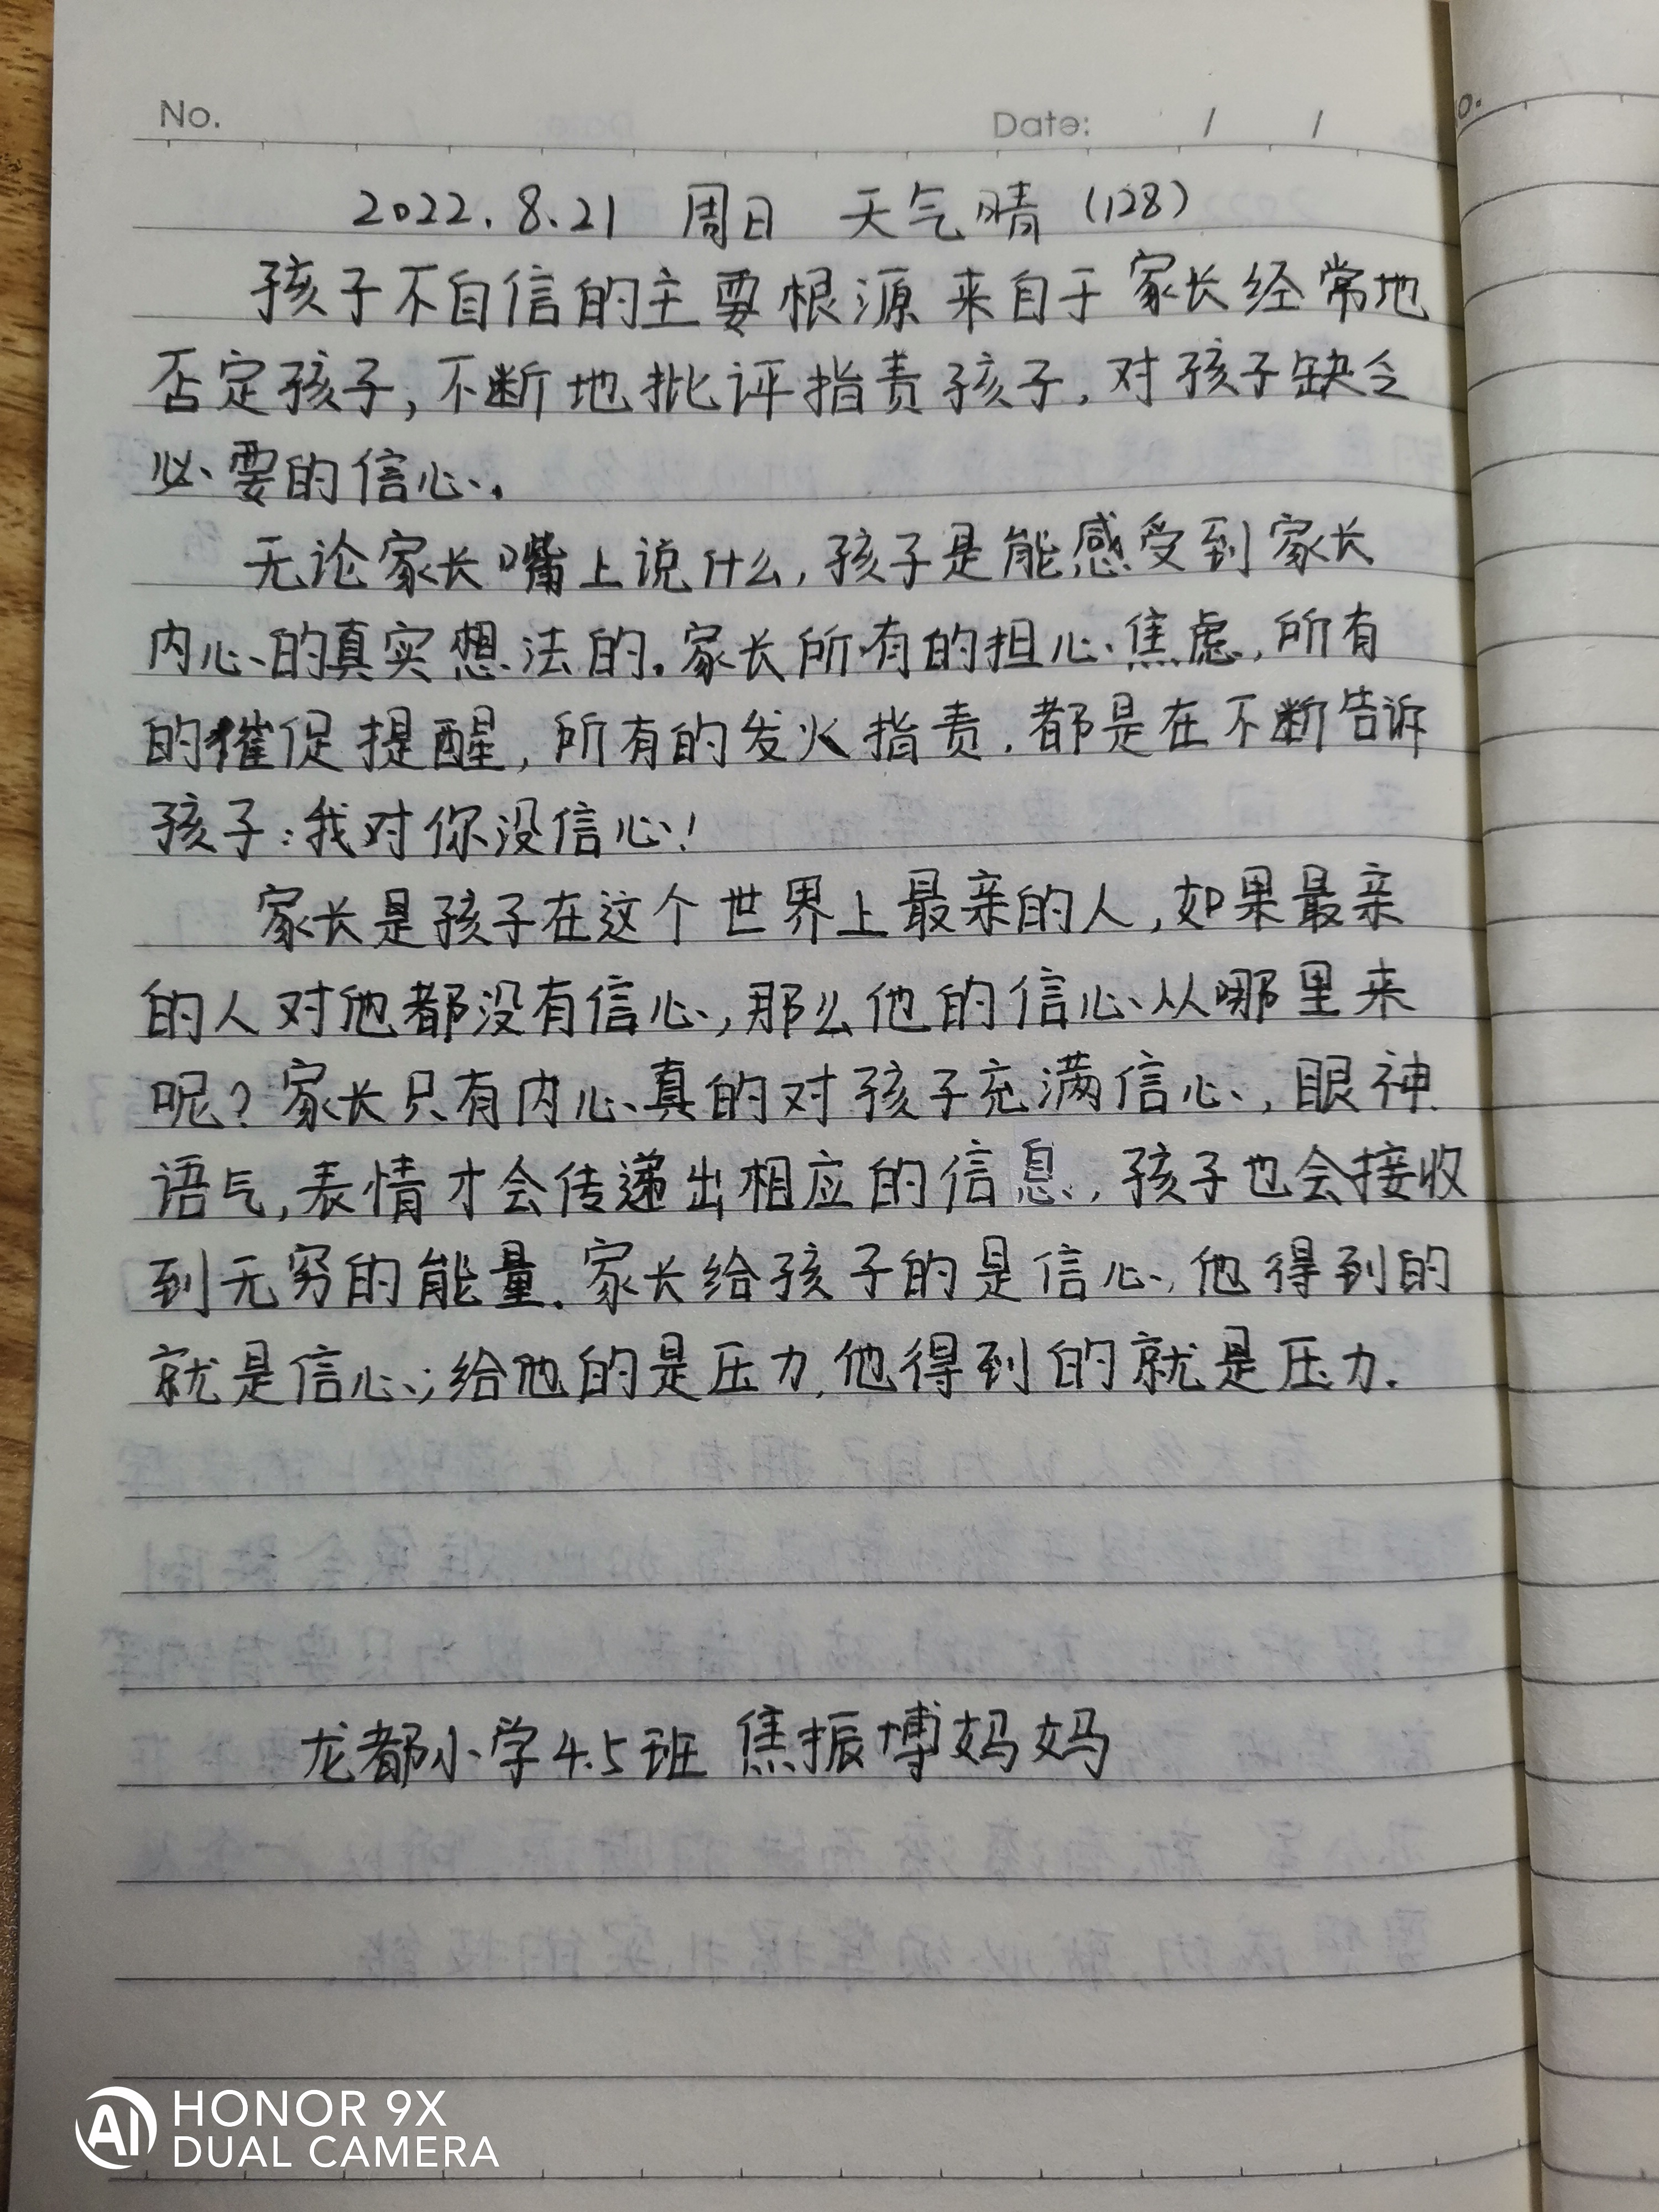 No.
Date: / /
2022.8.21 周日 天气晴 (128)
孩子不自信的主要根源来自于家长经常地
否定孩子,不断地批评指责孩子,对孩子缺乏
必要的信心.
无论家长嘴上说什么,孩子是能感受到家长
内心的真实想法的.家长所有的担心焦虑,所有
的催促提醒,所有的发火指责,都是在不断告诉
孩子:我对你没信心!
家长是孩子在这个世界上最亲的人,如果最亲
的人对他都没有信心,那么他的信心从哪里来
呢?家长只有内心真的对孩子充满信心,眼神.
语气,表情才会传递出相应的信息,孩子也会接收
到无穷的能量.家长给孩子的是信心,他得到的
就是信心;给他的是压力,他得到的就是压力.
龙都小学4.5班 焦振博妈妈
AI HONOR 9X
DUAL CAMERA